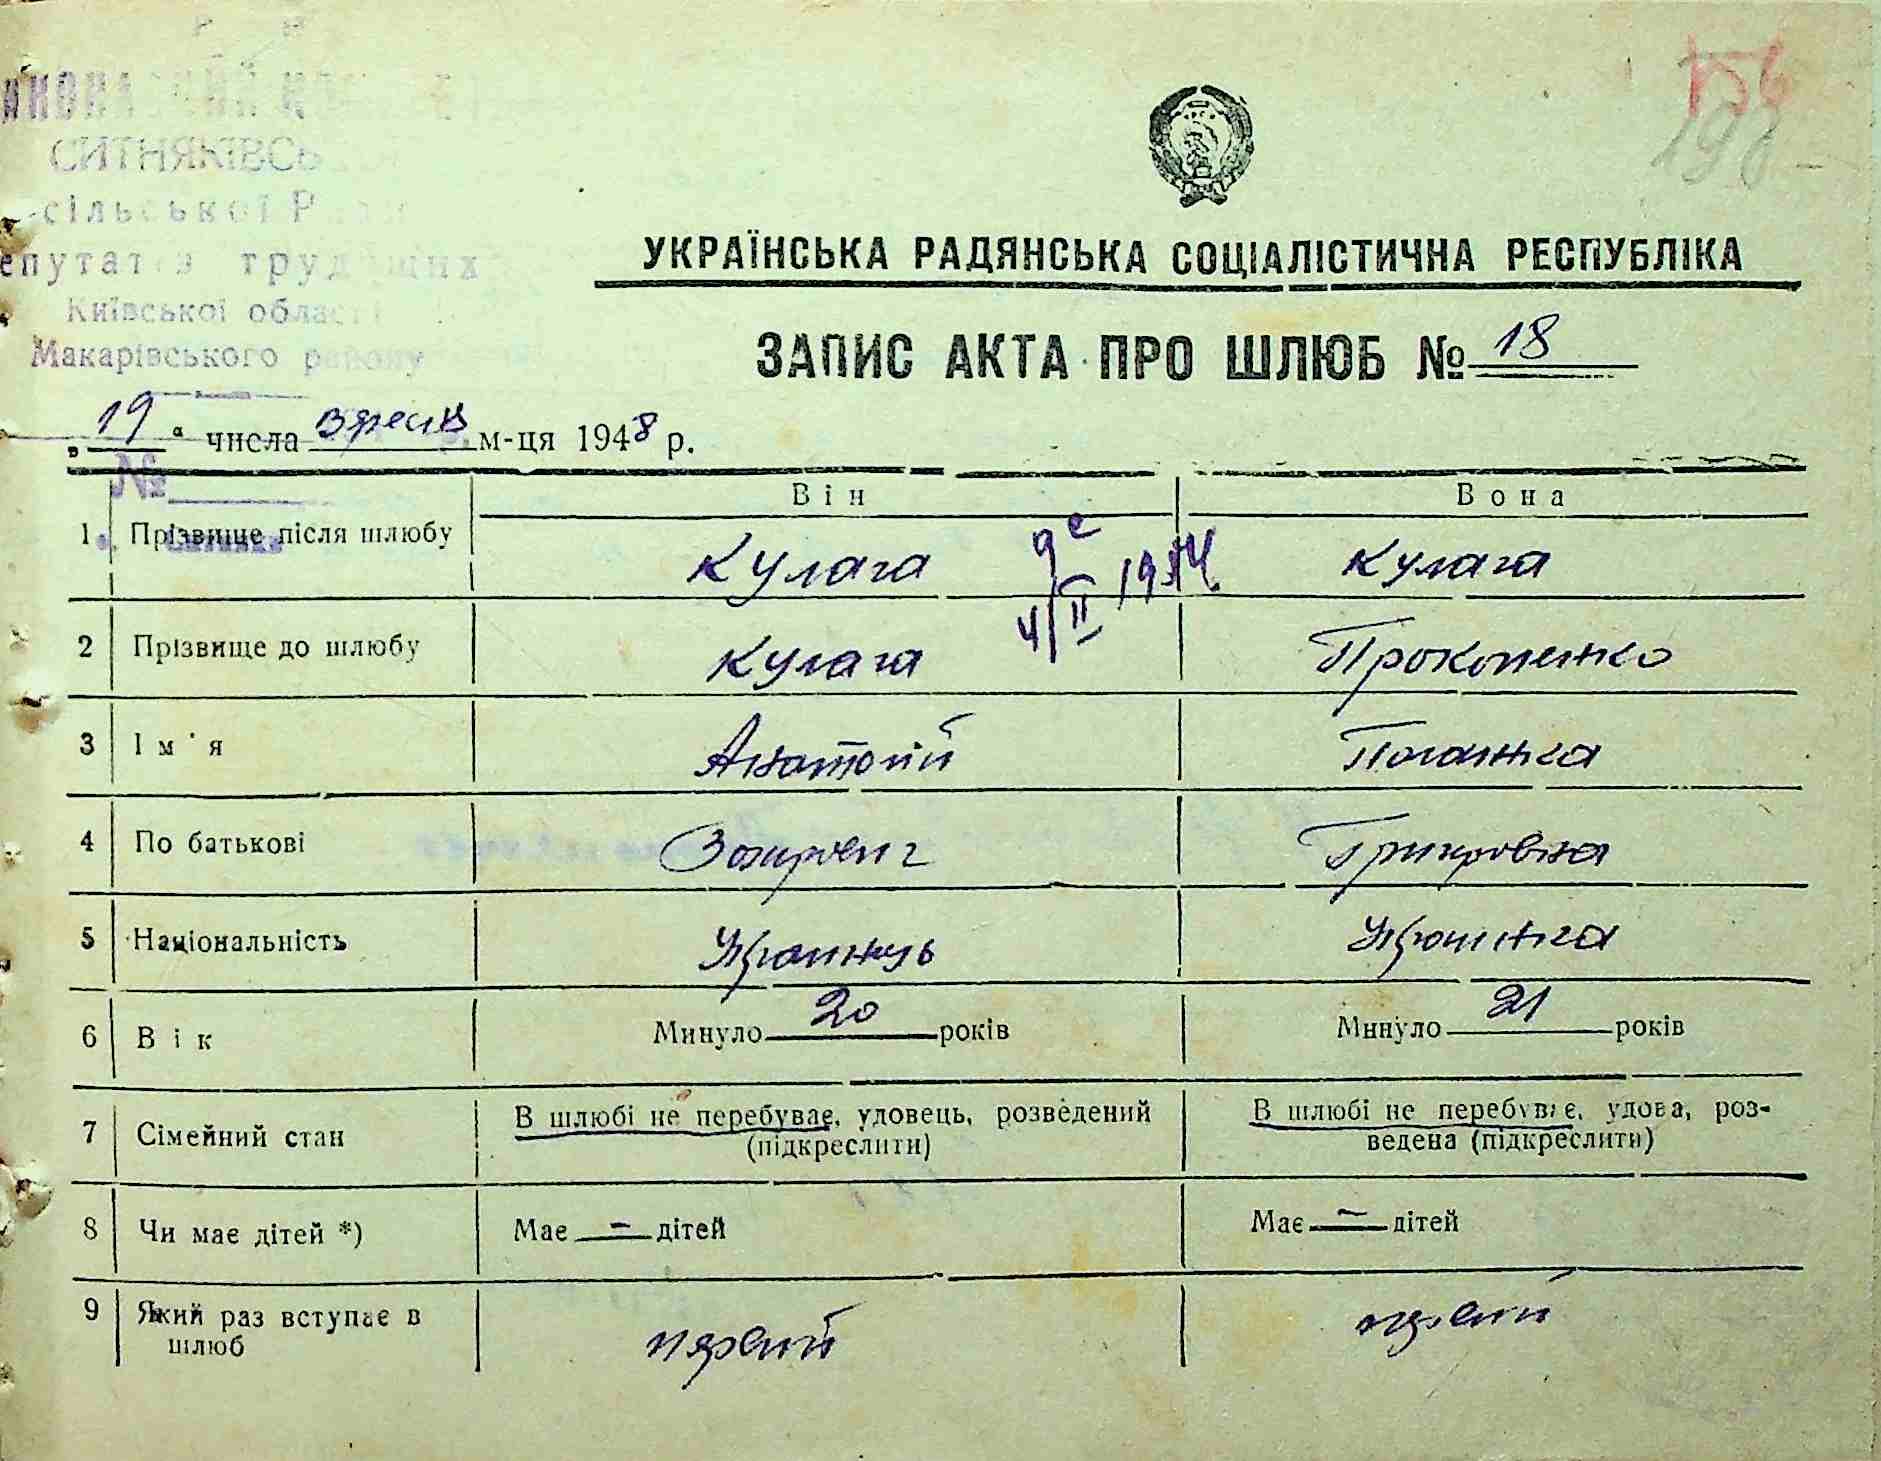 СИТНЯКІВСЬ
сільської Р
епутатів трудящих
Київської області
Макарівського району
№
156
198
УКРАЇНСЬКА РАДЯНСЬКА СОЦІАЛІСТИЧНА РЕСПУБЛІКА
ЗАПИС АКТА ПРО ШЛЮБ № 18
„19“ числа вресня м-ця 1948 р.
Він Вона
1 Прізвище після шлюбу Кулага Кулага
2 Прізвище до шлюбу Кулага Прокопенко
3 Ім'я Анатолій Поланка
4 По батькові Григровна
5 Національність Українець Українка
6 Вік Минуло 20 років Минуло 21 років
7 Сімейний стан В шлюбі не перебуває, удовець, розведений В шлюбі не перебуває, удова, роз-
(підкреслити) ведена (підкреслити)
8 Чи має дітей *) Має — дітей Має — дітей
9 Який раз вступає в первий первий
шлюб